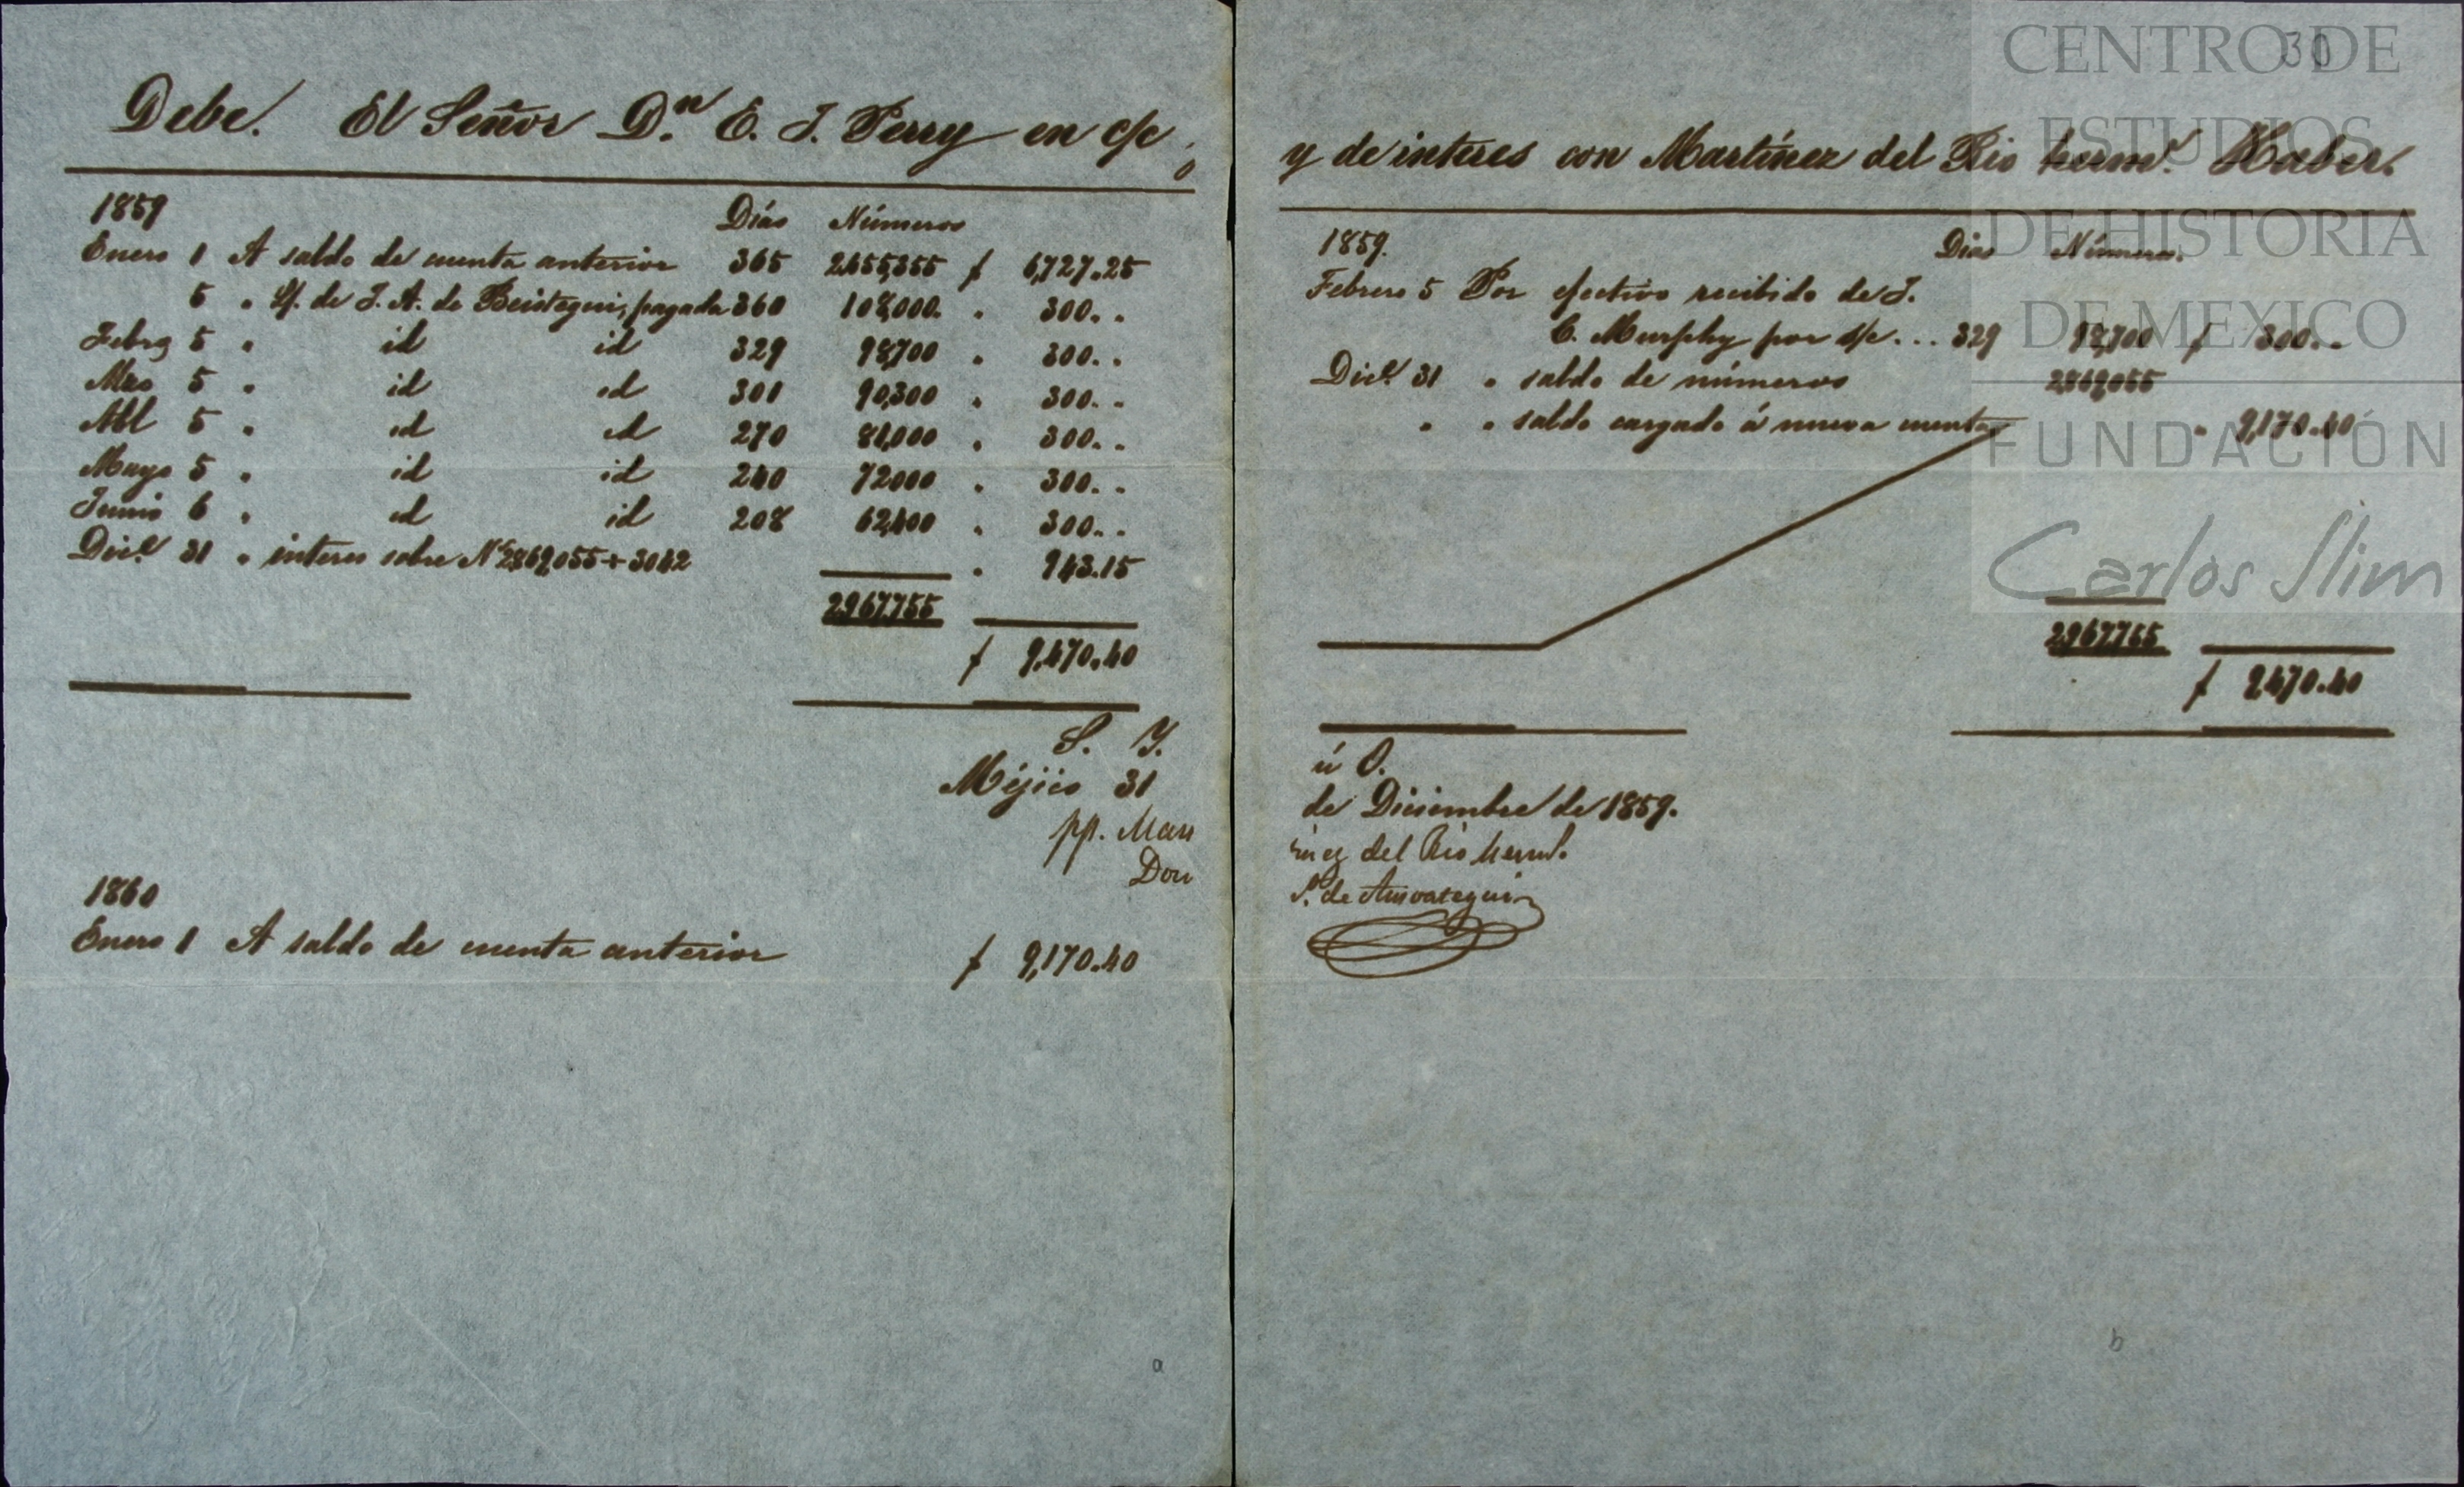 Debe. El Señor D.n E. J. Perry en c/c
1859
Días Números
Enero 1 A saldo de cuenta anterior 365 2.455,355 $ 6,727.25
5 " L/. de J. A. de Beistegui, pagada 360 108,000. " 300. .
Febro 5 " id id 329 98,700 " 300. .
Mzo 5 " id id 301 90,300 " 300. .
Abl 5 " id id 270 81,000 " 300. .
Mayo 5 " id id 240 72000 " 300. .
Junio 6 " id id 208 62,400 " 300. .
Dice 31 " interes sobre Ns 2869,055 ÷ 3042 " 943.15
2.967.755
$ 9,470.40
S. Y.
Méjico 31
pp. Mar
Don
1860
Enero 1 A saldo de cuenta anterior $ 9,170.40
a
30
y de interes con Martínez del Rio herms. Haber.
1859.
Dias Números.
Febrero 5 Por efectivo recibido de J.
C. Murphy por s/c ... 329 98,700 $ 300. .
Dice 31 " saldo de números 2869,055
" " saldo cargado á nueva cuenta " 9,170.40
2.967.755
$ 9.470.40
ú O.
de Diciembre de 1859.
tinez del Rio herms.
P. de Amoategui
b
CENTRO DE
ESTUDIOS
DE HISTORIA
DE MEXICO
FUNDACIÓN
Carlos Slim